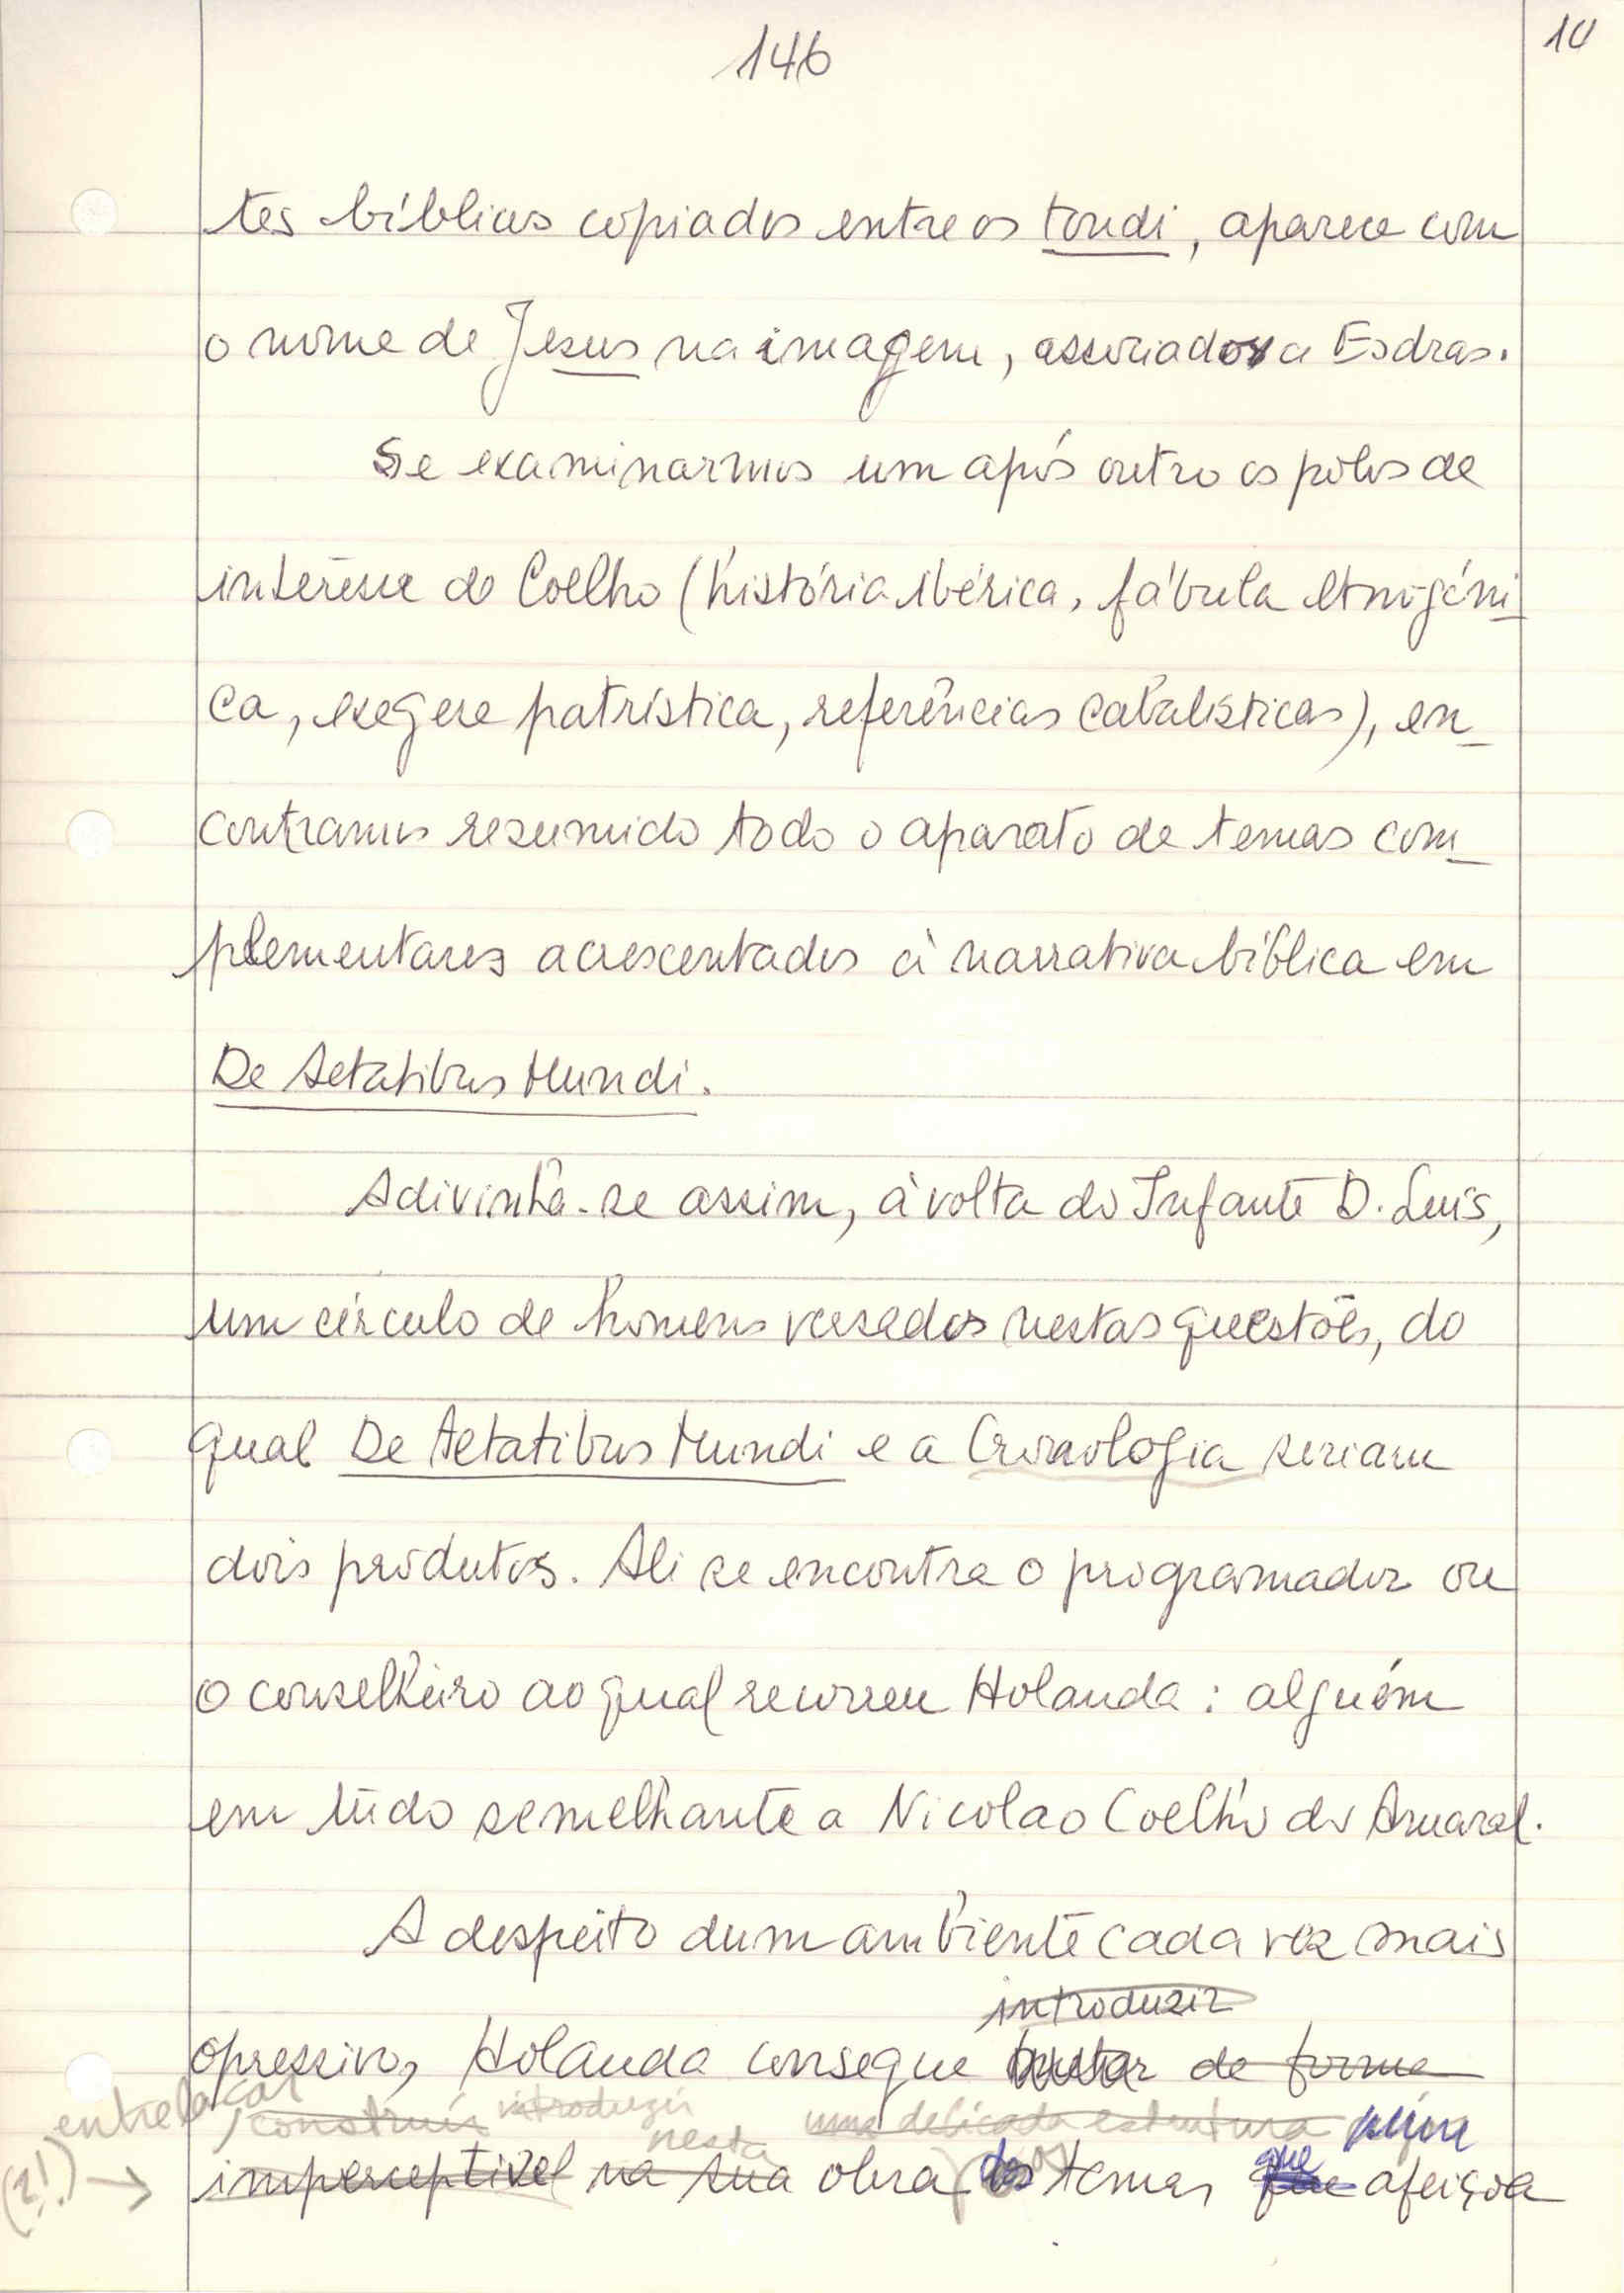 146
10
tes bíblicas copiados entre os tondi, aparece com
o nome de Jesus na imagem, associado a Esdras.
Se examinarmos um após outro os pólos de
interêsse do Coelho (história ibérica, fábula etnogéni
ca, exegese patrística, referências cabalísticas), en-
contramos resumido todo o aparato de temas com-
plementares acrescentados à narrativa bíblica em
De Aetatibus Mundi.
Adivinha-se assim, à volta do Infante D. Luís,
um círculo de homens versados nestas questões, do
qual De Aetatibus Mundi e a Cronologia seriam
dois produtos. Ali se encontra o programador ou
o conselheiro ao qual recorreu Holanda: alguém
em tudo semelhante a Nicolao Coelho do Amaral.
A despeito dum ambiente cada vez mais
introduzir
opressivo, Holanda consegue de forma
entrelaçar construir introduzir nesta uma delicada estrutura
(?!) → imperceptível na sua obra temas que afeiçoa